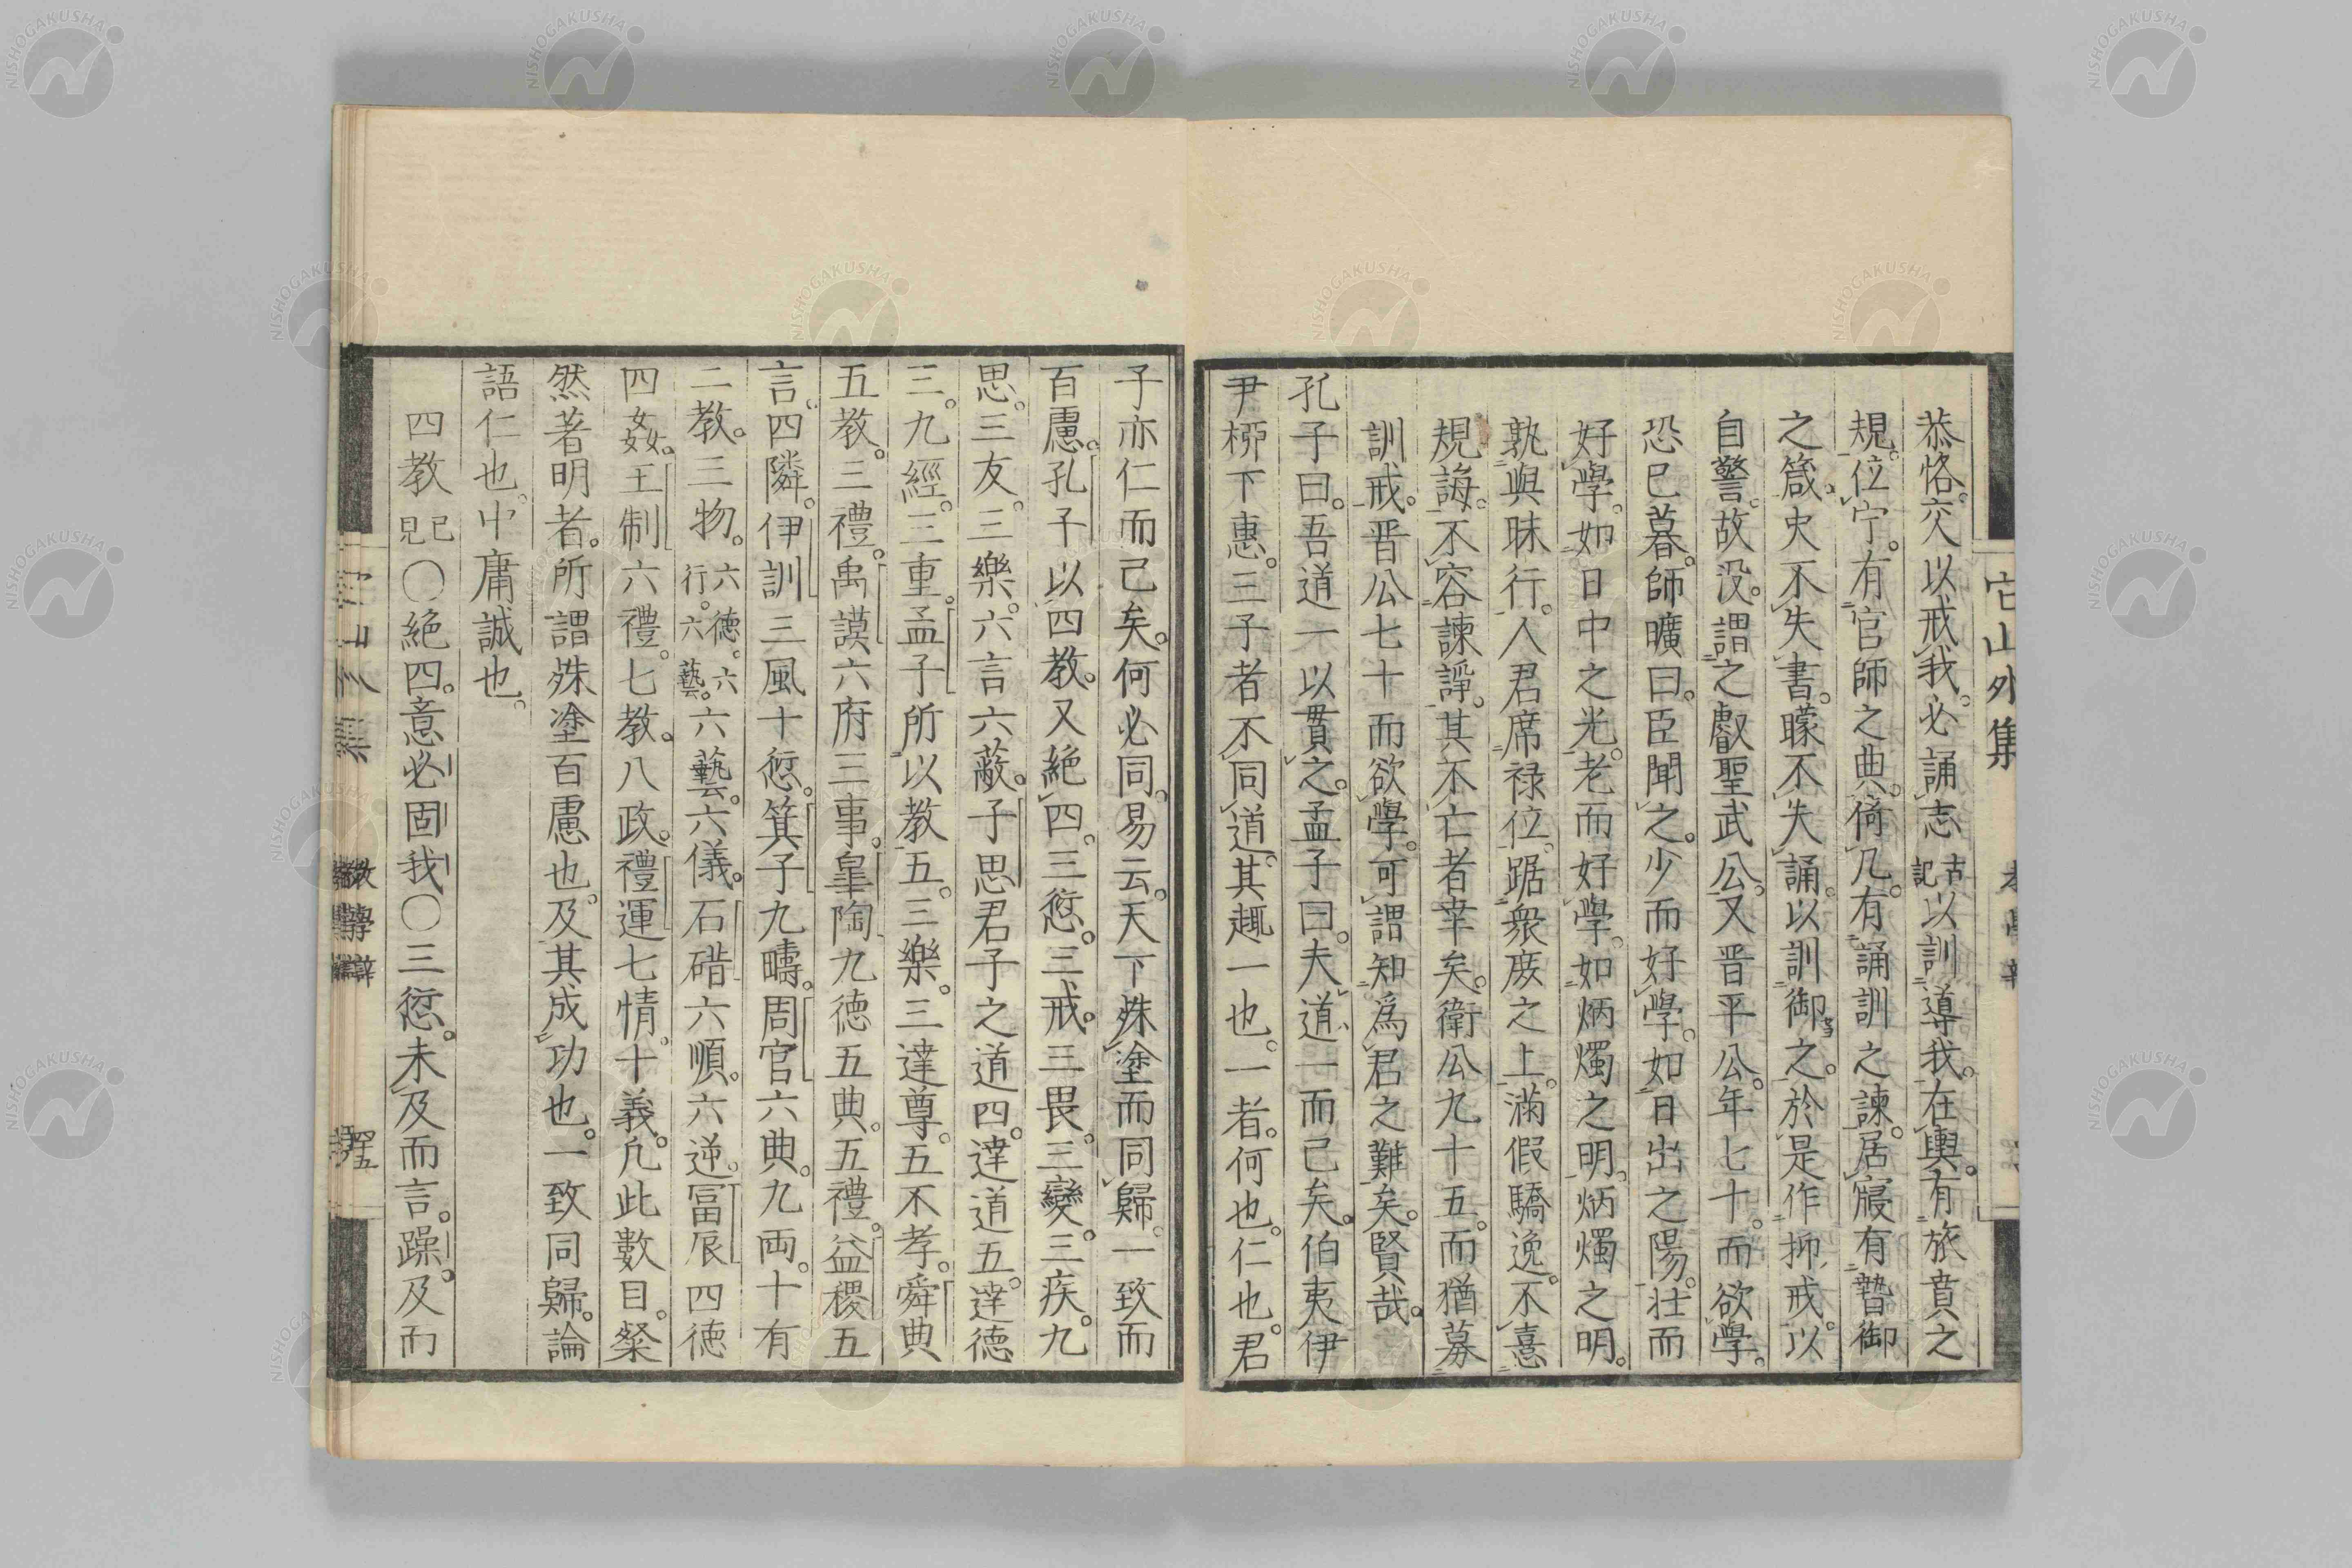 恭恪。交以戒我。必誦志古記以訓導我。在輿。有旅賁之
規。位宁。有官師之典。倚几。有誦訓之諫。居寢有暬御
之箴。史不失書。矇不失誦。以訓御之。於是作抑戒。以
自警。故沒。謂之叡聖武公。又晋平公。年七十。而欲學。
恐已暮。師曠曰。臣聞之。少而好學。如日出之陽。壮而
好學。如日中之光。老而好學。如炳燭之明。炳燭之明。
孰與昧行。人君席禄位。踞衆庻之上。滿假驕逸。不憙
規誨。不容諫諍。其不亡者幸矣。衛公九十五。而猶募
訓戒。晋公七十而欲學。可謂知爲君之難矣。賢哉。
孔子曰。吾道一以貫之。孟子曰。夫道一而已矣。伯夷伊
尹桺下惠。三子者不同道。其趣一也。一者。何也。仁也。君
子亦仁而已矣。何必同。易云。天下殊塗而同歸。一致而
百慮。孔子以四教。又絶四。三愆。三戒。三畏。三變。三疾。九
思。三友。三樂。六言六蔽。子思君子之道四。達道五。達德
三。九經。三重。孟子所以教五。三樂。三達尊。五不孝。舜典
五教。三禮。禹謨六府三事。皐陶九德五典。五禮。益稷五
言。四隣。伊訓三風十愆。箕子九疇。周官六典。九両。十有
二教。三物。六德。六行。六藝。六藝。六儀。石碏六順。六逆。冨辰四德
四姦。王制六禮。七教。八政。禮運七情。十義。凢此數目。粲
然著明者。所謂殊塗百慮也。及其成功也。一致同歸。論
語仁也。中庸誠也。
四教見已〇絶四。意必固我〇三愆。未及而言。躁。及而
它山外集
四十五